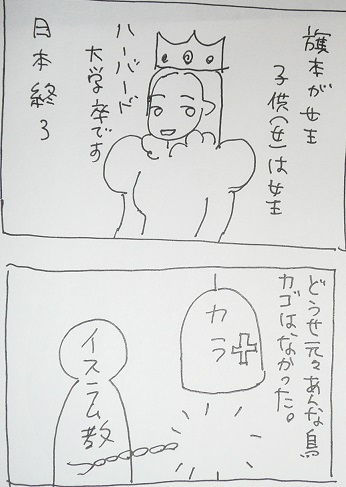 旗本が女王
子供(女)は女王
ハーバード
大学卒です
日本終る
どうせ元々あんな鳥
カゴはなかった。
カラ
イスラム教